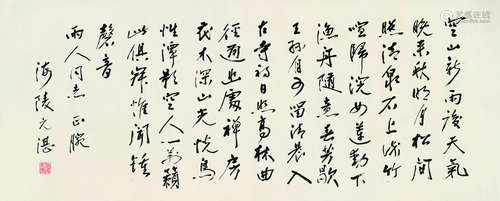 空山新雨後天氣
晚來秋明月松間
照清泉石上流竹
喧歸浣女蓮動下
漁舟隨意春芳歇
王孫自可留清晨入
古寺初日照高林曲
徑通幽處禪房
花木深山光悅鳥
性潭影空人心萬籟
此俱寂惟聞鐘
磬音
雨人同志正腕
海陵